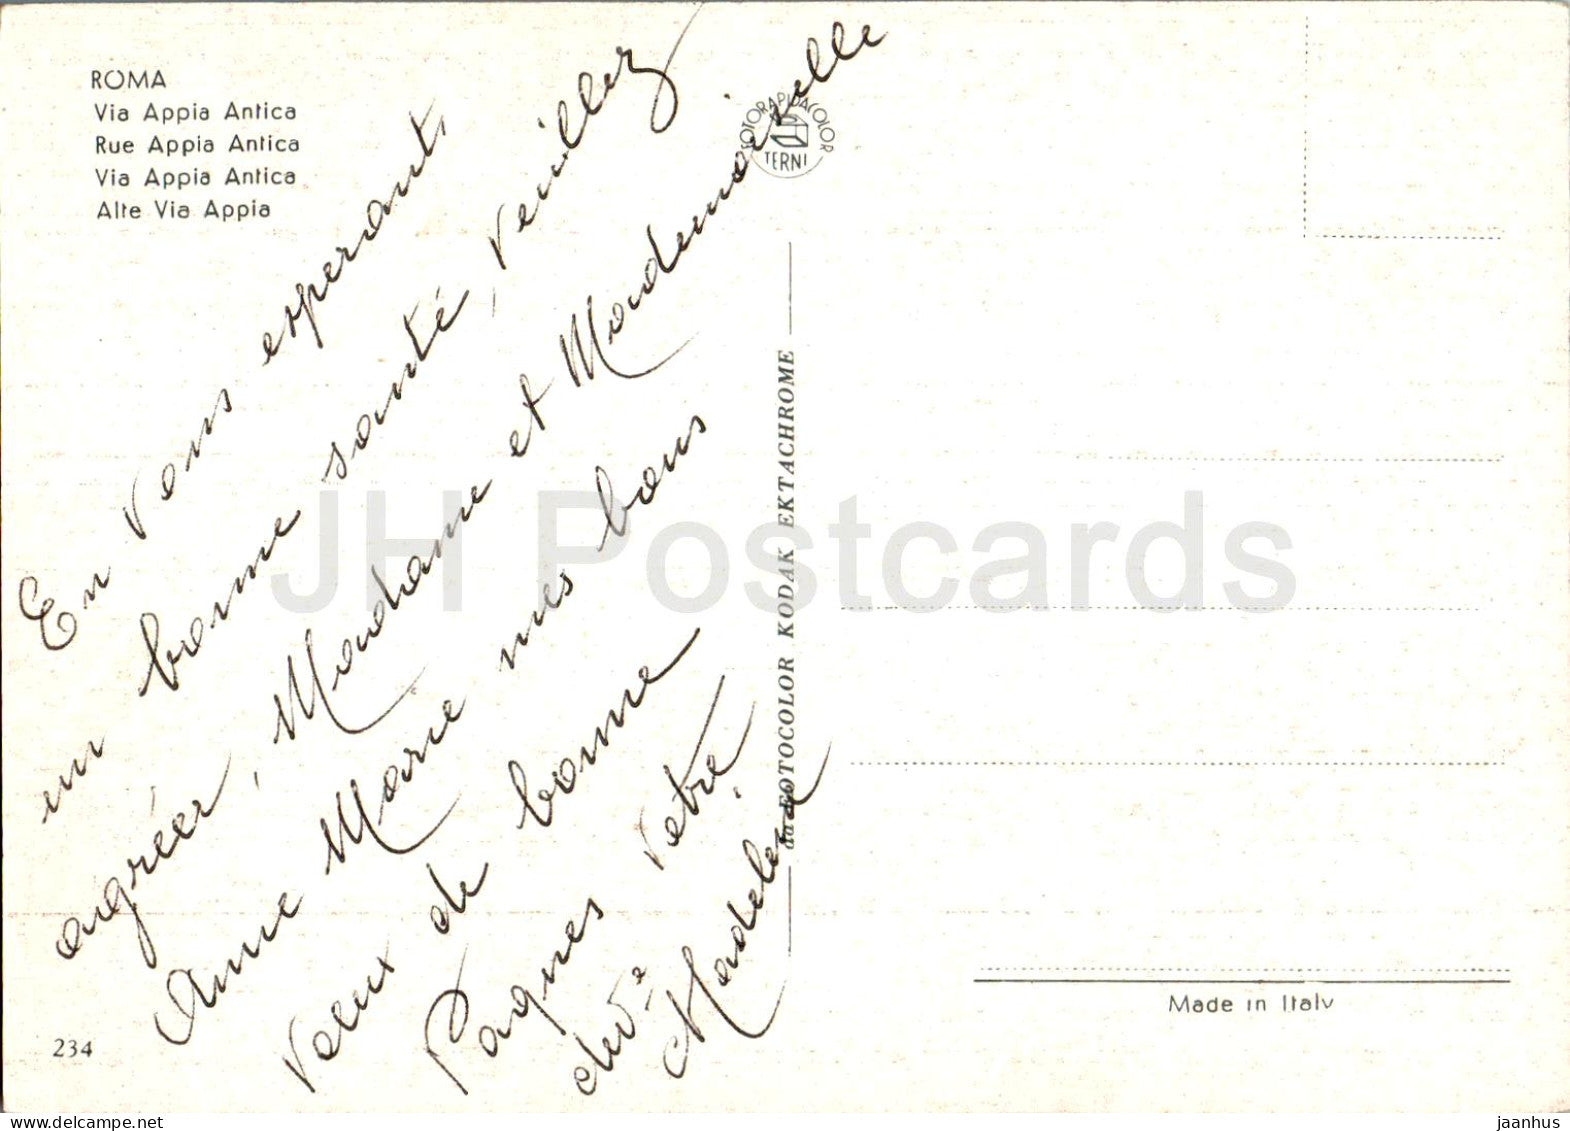 ROMA
Via Appia Antica
Rue Appia Antica
Via Appia Antica
Alte Via Appia
FOTORAPIDACOLOR
TERNI
En vous esperant,
en bonne santé, veuillez
agréer, Madame et Mademoiselle
Anne Marie mes bons
vœux de bonne
Paques Votre
dévée
Madeleine
da FOTOCOLOR KODAK EKTACHROME
234
Made in Italy
JH Postcards
www.delcampe.net
jaanhus